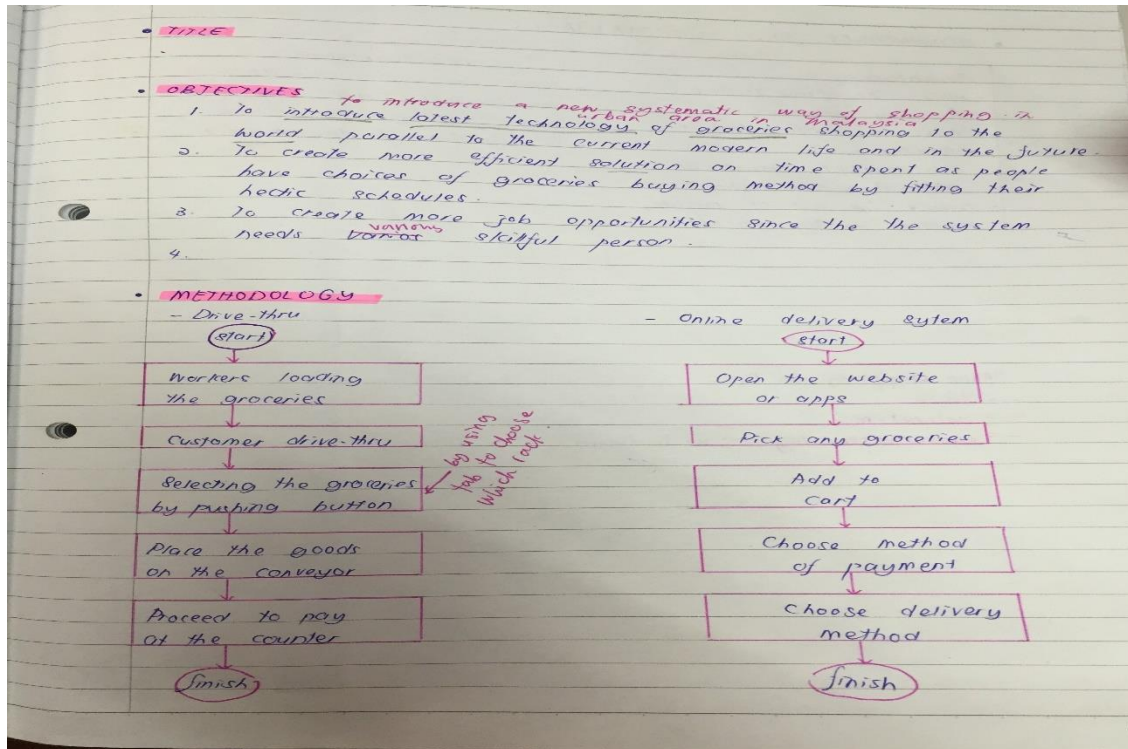 TITLE
OBJECTIVES
to introduce a new, systematic way of shopping in
urban area in Malaysia
1. To introduce latest technology of groceries shopping to the
world parallel to the current modern life and in the future.
2. To create more efficient solution on time spent as people
have choices of groceries buying method by fitting their
hectic schedules.
3. To create more job opportunities since the the system
various
needs skillful person.
4.
METHODOLOGY
- Drive-thru
start
Workers loading
the groceries
Customer drive-thru
Selecting the groceries
by pushing button
by using
tab to choose
which rack
Place the goods
on the conveyor
Proceed to pay
at the counter
finish
- Online delivery sytem
start
Open the website
or apps
Pick any groceries
Add to
cart
Choose method
of payment
Choose delivery
method
finish